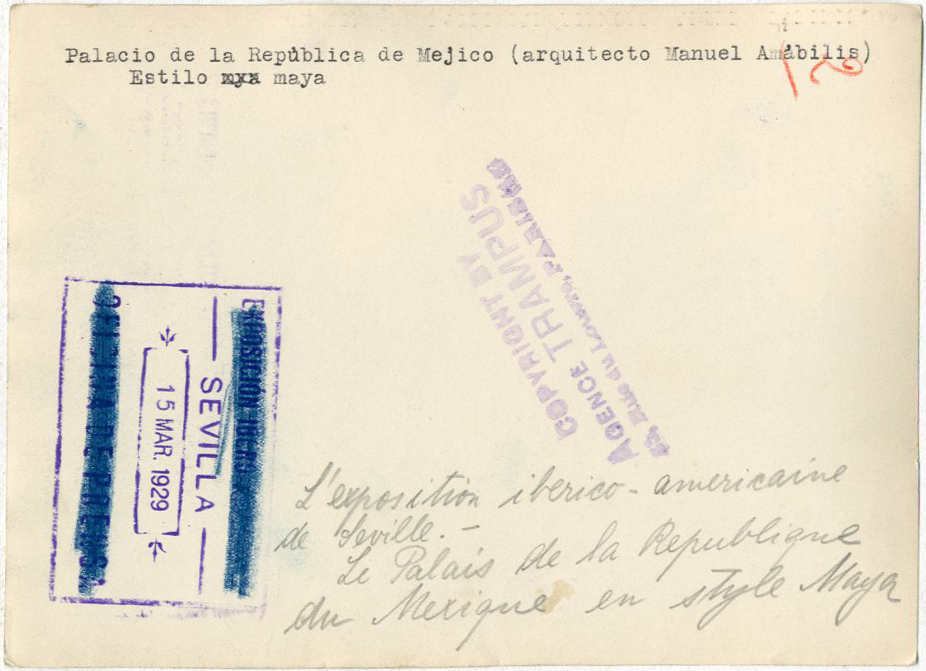 Palacio de la República de Mejico (arquitecto Manuel Amábilis)
Estilo xyx maya
2
COPYRIGHT BY
AGENCE TRAMPUS
Rue du Louvre, PARIS
EXPOSICIÓN IBERO
SEVILLA
15 MAR. 1929
OFICINA DE PRENSA
L'exposition iberico-americaine
de Seville.-
Le Palais de la Republique
du Mexique en style Maya